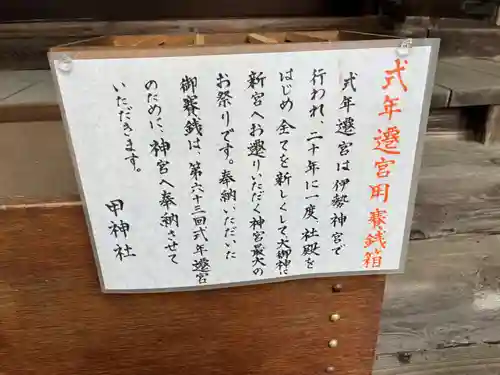 式年遷宮用賽銭箱
式年遷宮は伊勢神宮で
行われ、二十年に一度、社殿を
はじめ全てを新しくして大御神に
新宮へお遷りいただく神宮最大の
お祭りです。奉納いただいた
御賽銭は、第六十三回式年遷宮
のために、神宮へ奉納させて
いただきます。
甲神社